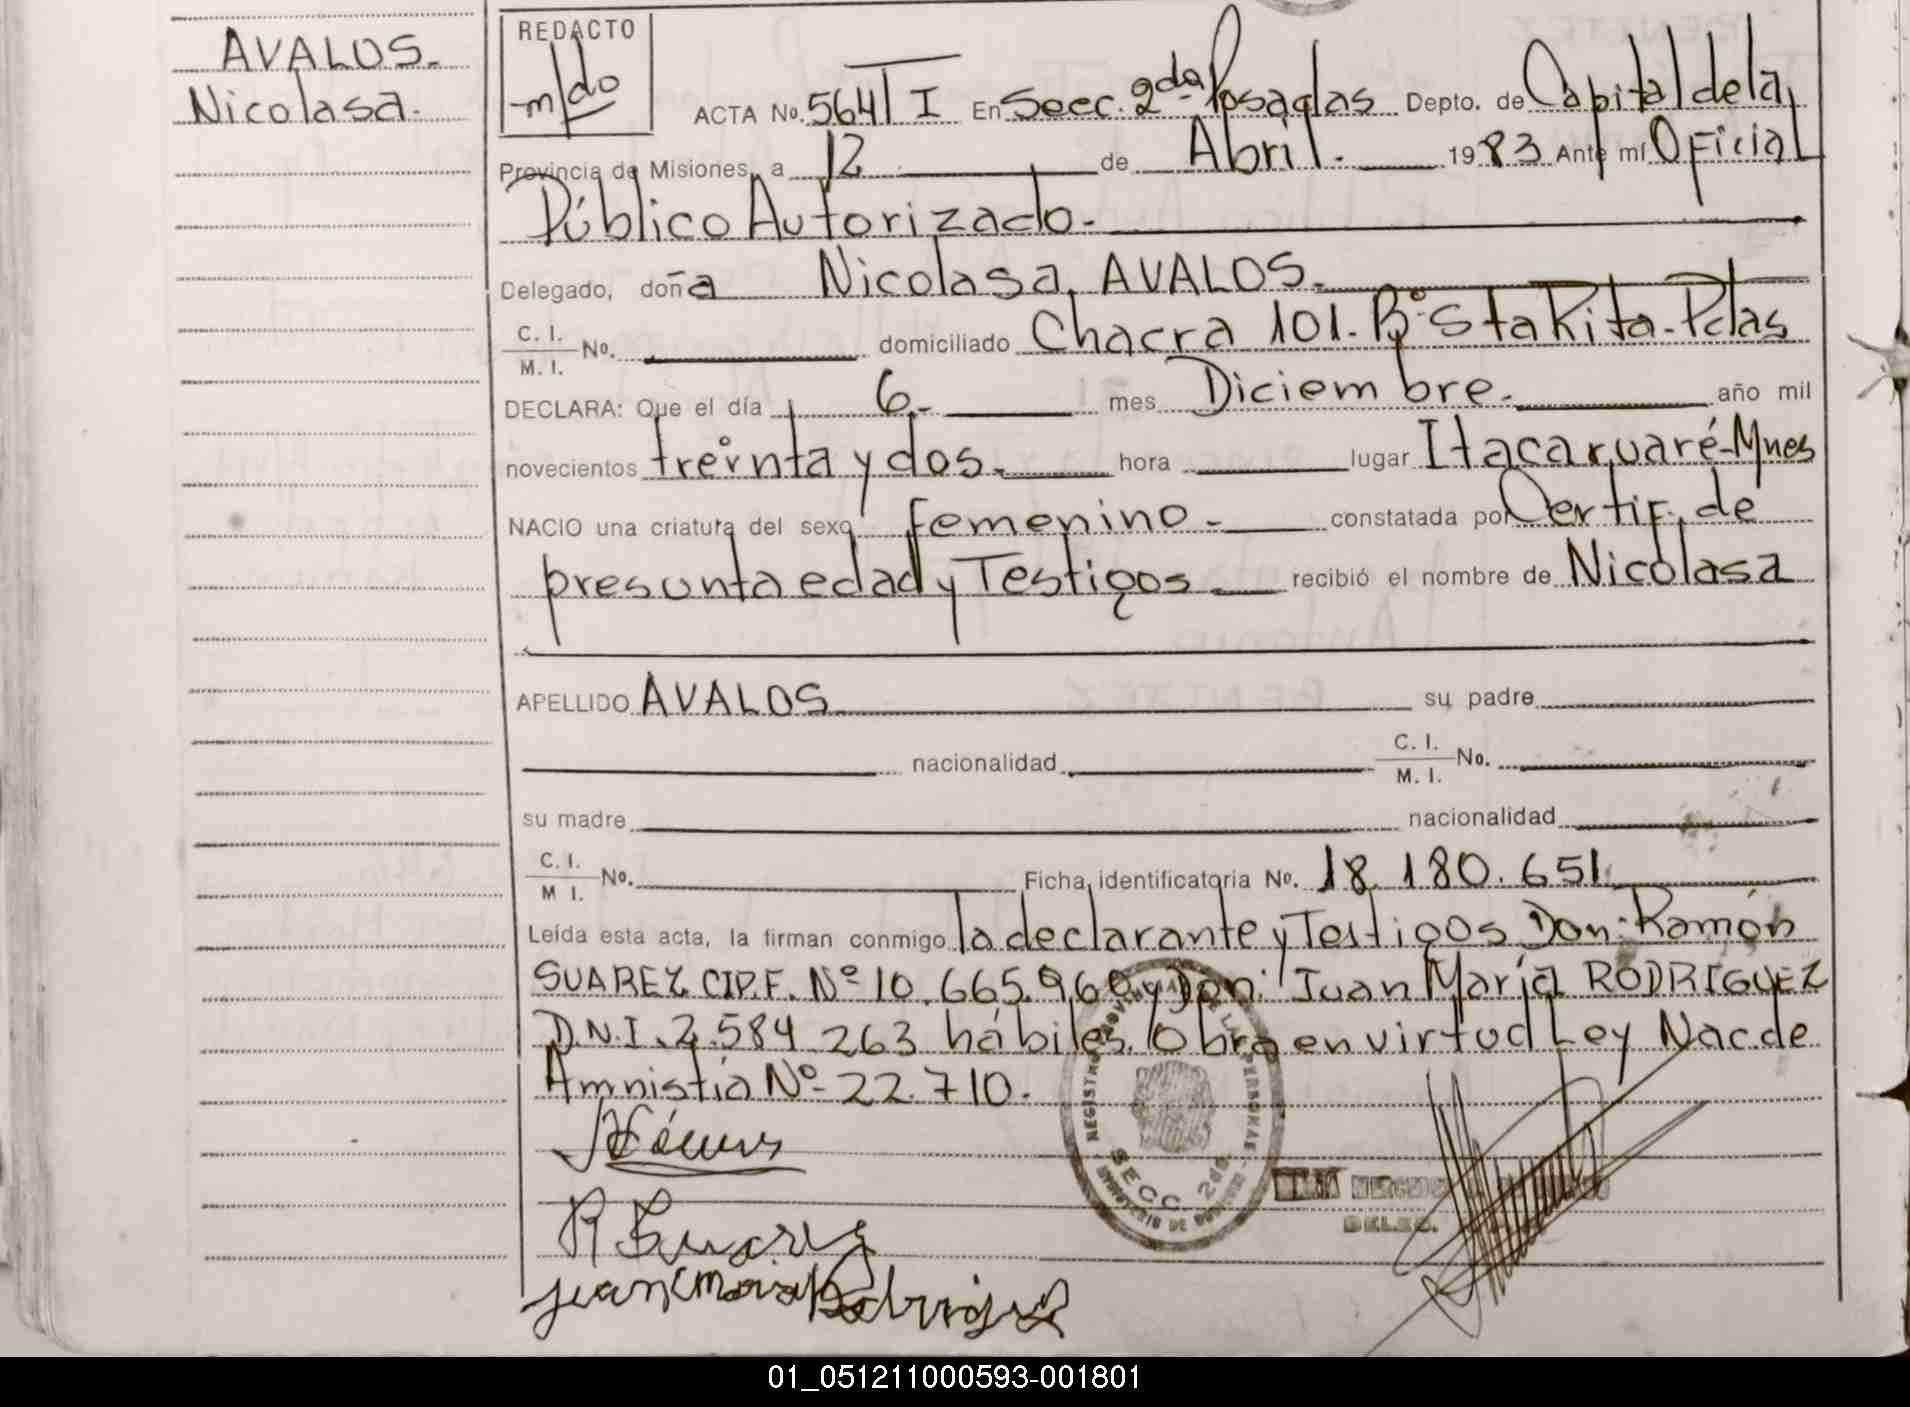 AVALOS.
Nicolasa.
REDACTO
m/do
ACTA No. 564 T I En Secc. 2da Posadas Depto. de Capital de la
Provincia de Misiones, a 12 de Abril. 1983 Ante mí Oficial
Público Autorizado.
Delegado, doña Nicolasa AVALOS.
C. I.
M. I. No. domiciliado Chacra 101. Bº Sta Rita - Pdas
DECLARA: Que el día 6. mes Diciembre. año mil
novecientos treinta y dos. hora lugar Itacaruaré-Mnes
NACIO una criatura del sexo femenino. constatada por Certif. de
presunta edad y Testigos recibió el nombre de Nicolasa
APELLIDO AVALOS su padre
nacionalidad C. I.
M. I. No.
su madre nacionalidad
C. I.
M I. No. Ficha identificatoria No. 18.180.651
Leída esta acta, la firman conmigo la declarante y Testigos Don: Ramón
SUAREZ CIP.F. Nº 10.665.960 y Don: Juan María RODRIGUEZ
D.N.I. 2.584.263 hábiles. Obra en virtud Ley Nac. de
Amnistía Nº 22.710.
R Suarez
Juan Maria Rodriguez
REGISTRO PROVINCIAL DE LAS PERSONAS
SECC. 2da
MINISTERIO DE GOBIERNO
DELEG.
01_051211000593-001801